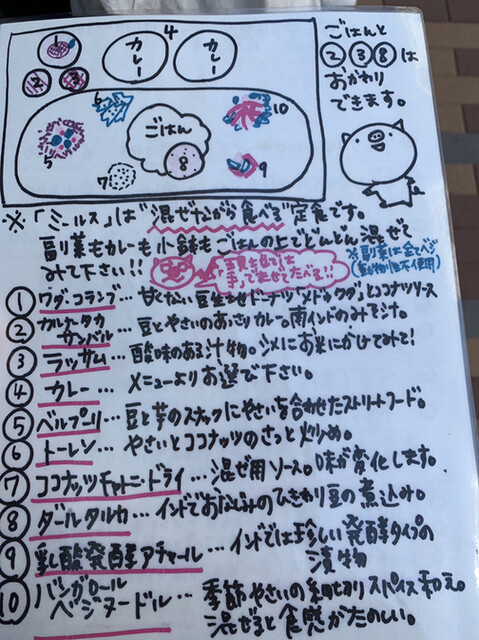 ごはんと
②③⑧は
おかわり
できます。
4
カレー
カレー
1
2
3
5
6
7
ごはん
8
9
10
※「ミールス」は"混ぜながら食べる"定食です。
副菜もカレーも小鉢もごはんの上でどんどん混ぜて
みて下さい!!
手でまぜてたべる!!
※副菜は全てベジ
(動物性不使用)
① ワダ・コランブ… 甘くない豆生地ドーナツ「メドゥワダ」とココナツソース
② カルナータカサンバル… 豆とやさいのあっさりカレー。南インドのみそ汁。
③ ラッサム… 酸味のある汁物。シメにお米にかけてみて!
④ カレー… メニューよりお選び下さい。
⑤ ベルプーリ… 豆と芋のスナックにやさいを合わせたストリートフード。
⑥ トーレン… やさいとココナッツのさっと炒め。
⑦ ココナッツチャトニードライ… 混ぜ用ソース。味が変化します。
⑧ ダールタルカ… インドでおなじみのひきわり豆の煮込み。
⑨ 乳酸発酵アチャール… インドでは珍しい発酵タイプの
漬物
⑩ バンガロール
ベジヌードル… 季節やさいの細切りスパイス和え。
混ぜると食感がたのしい。